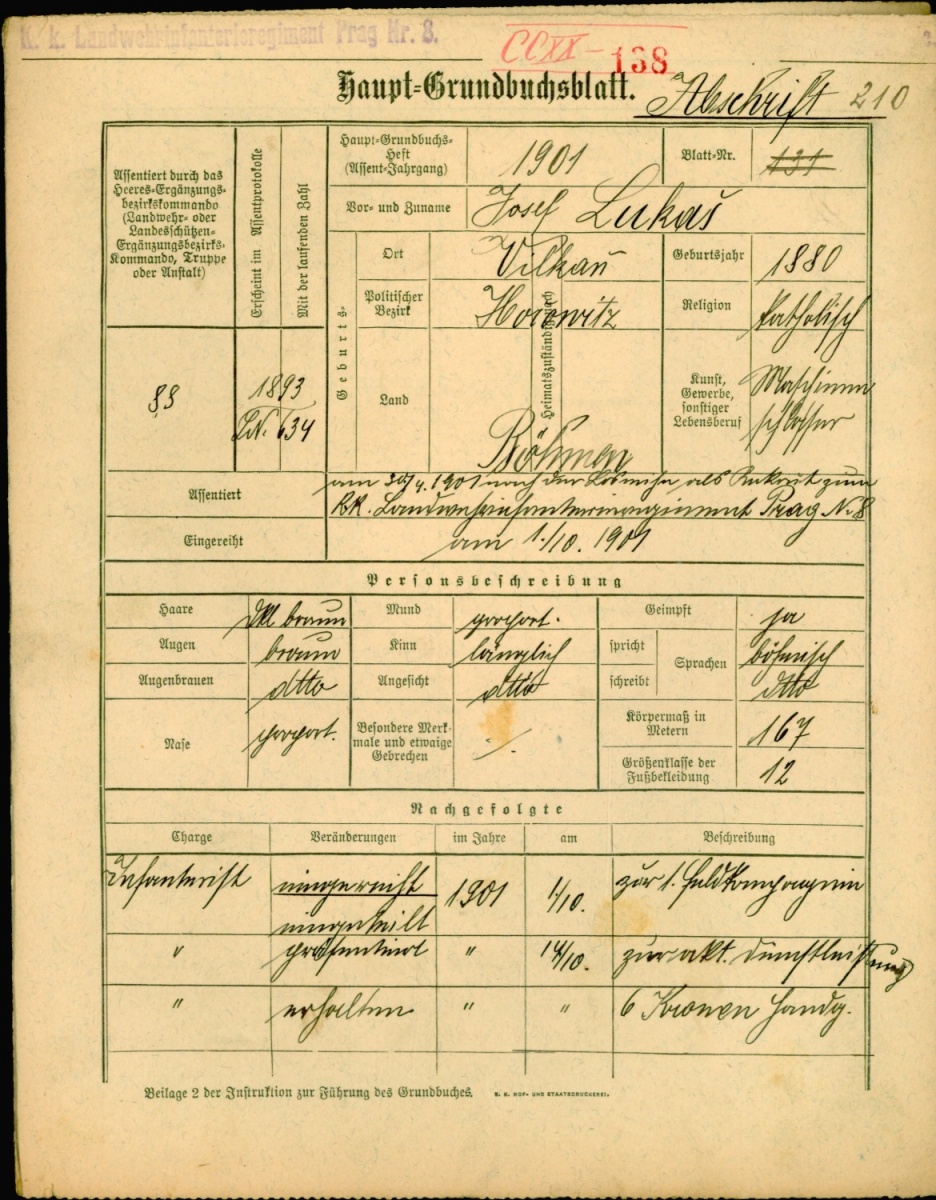 K. k. Landwehrinfanterieregiment Prag Nr. 8.
CCXX – 138
Haupt-Grundbuchsblatt.
Abschrift 210
Assentiert durch das
Heeres-Ergänzungs-
bezirkskommando
(Landwehr- oder
Landesschützen-
Ergänzungsbezirks-
Kommando, Truppe
oder Anstalt)
88
Erscheint im Assentprotokolle
Mit der laufenden Zahl
1893
LN. 634
Haupt-Grundbuchs-
Heft
(Assent-Jahrgang)
1901
Blatt-Nr.
131
Vor- und Zuname
Josef Lukaš
Geburts-
Ort
Vilkau
Geburtsjahr
1880
Politischer
Bezirk
Hořowitz
Religion
katholisch
Land
Böhmen
Heimatszuständig nach
Kunst,
Gewerbe,
sonstiger
Lebensberuf
Maschinen
schlosser
Assentiert
am 30/4. 1901 nach der Losreihe als Rekrut zum
kk. Landwehrinfanterieregiment Prag N. 8
Eingereiht
am 1./10. 1901
Personsbeschreibung
Haare
dkl braun
Mund
proport.
Geimpft
ja
Augen
braun
Kinn
länglich
spricht
Sprachen
böhmisch
Augenbrauen
dtto
Angesicht
dtto
schreibt
dtto
Nase
proport.
Besondere Merk-
male und etwaige
Gebrechen
./.
Körpermaß in
Metern
167
Größenklasse der
Fußbekleidung
12
Nachgefolgte
Charge Veränderungen im Jahre am Beschreibung
Infanterist eingereiht 1901 1/10. zur 1. Feldkompagnie
eingeteilt
" präsentiert " 14/10. zur akt. Dienstleistung
" erhalten " " 6 Kronen Handg.
Beilage 2 der Instruktion zur Führung des Grundbuches.
K. K. HOF- UND STAATSDRUCKEREI.